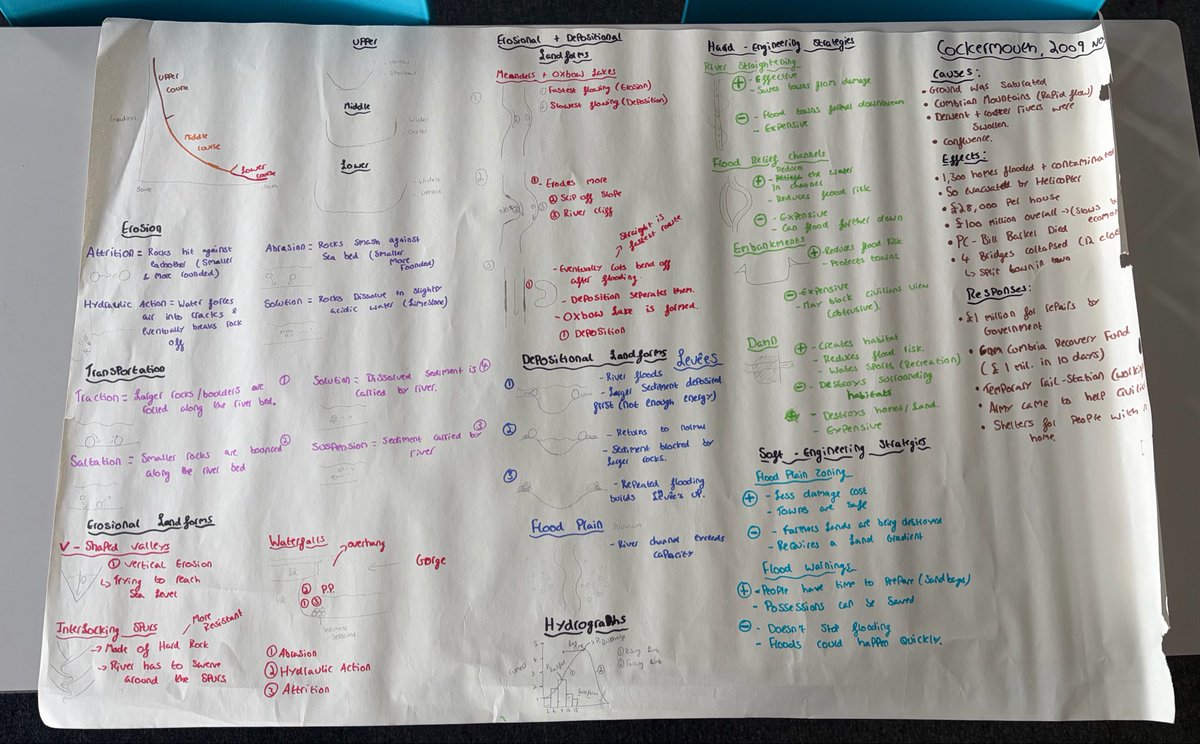 UPPER
Upper
course
Middle
course
Lower
course
Gradient
Source
Mouth
- Narrow
- Shallow
Middle
- Wider
- Deeper
Lower
- Widest
- Deepest
Erosion
Attrition = Rocks hit against
eachother (Smaller
& More rounded)
Abrasion = Rocks smash against
Sea bed (Smaller
More
rounded)
Hydraulic Action = Water forces
air into cracks &
eventually breaks rock
off
Solution = Rocks Dissolve in slightly
acidic water (Limestone)
Transportation
Traction = Larger rocks/boulders are ①
rolled along the river bed.
Solution = Dissolved Sediment is ④
carried by river.
Saltation = Smaller rocks are bounced ②
along the river bed
Suspension = Sediment carried by ③
river
Erosional Landforms
V - Shaped valleys
① Vertical Erosion
↳ Trying to reach
Sea level
Interlocking Spurs
More
Resistant
→ Made of Hard Rock
→ River has to Swerve
around the SPURS.
Waterfalls
overhang
Gorge
SR
HR
② P.P.
① ③
Sediment
Deposited
① Abrasion
② Hydraulic Action
③ Attrition
Erosional + Depositional
Landforms
Meanders + Oxbow Lakes
①
① Fastest flowing (Erosion)
② Slowest flowing (Deposition)
②
① - Erodes more
② Slip off Slope
③ River cliff
Straight is
fastest route
③
- Eventually cuts bend off
after flooding.
- Deposition separates them.
- Oxbow Lake is formed.
① Deposition
Depositional Landforms Levées
①
- River floods
- Larger Sediment deposited
first (not enough energy)
②
- Returns to normal
- Sediment blocked by
larger rocks.
③
- Repeated flooding
builds Levées up.
Flood Plain
Alluvium
- River channel exceeds
capacity
Hydrographs
① Rising Limb
② Falling Limb
Hard - Engineering Strategies
River Straightening
+ - Effective
- Saves towns from damage
- - Flood towns further downstream
- Expensive
Flood Relief Channels
Reduce
+ - the water
in channel
- Reduces flood risk
- - Expensive
- Can flood further down
Embankments
+ - Reduces flood risk
- Protects towns
- - Expensive
- May block civilians view
(obtrusive).
Dams
+ - Creates habitat
- Reduces flood risk.
- Water Sports (Recreation)
- - Destroys surrounding
habitats
- Destroys homes/land.
- Expensive
Soft - Engineering Strategies
Flood Plain Zoning
+ - Less damage cost
- Towns are safe
- - Farmers lands are being destroyed
- Requires a Land Gradient
Flood warnings
+ - People have time to prepare (Sandbags)
- Possessions can be saved
- - Doesn't stop flooding
- Floods could happen quickly.
Cockermouth, 2009 Nov
Causes:
• Ground was Saturated
• Cumbrian Mountains (Rapid flow)
• Derwent + Cocker rivers were
Swollen
• Confluence.
Effects:
• 1,300 homes flooded + contaminated
• 50 evacuated by Helicopter
• £28,000 per house
• £100 million overall → (slows
• PC - Bill Barker Died
• 4 Bridges collapsed
↳ split town in two
Responses:
• £1 million for repairs by
Government
• Cumbria Recovery Fund
(£1 mil. in 10 days)
• Temporary rail-Station
• Army came to help
• Shelters for people with
home.